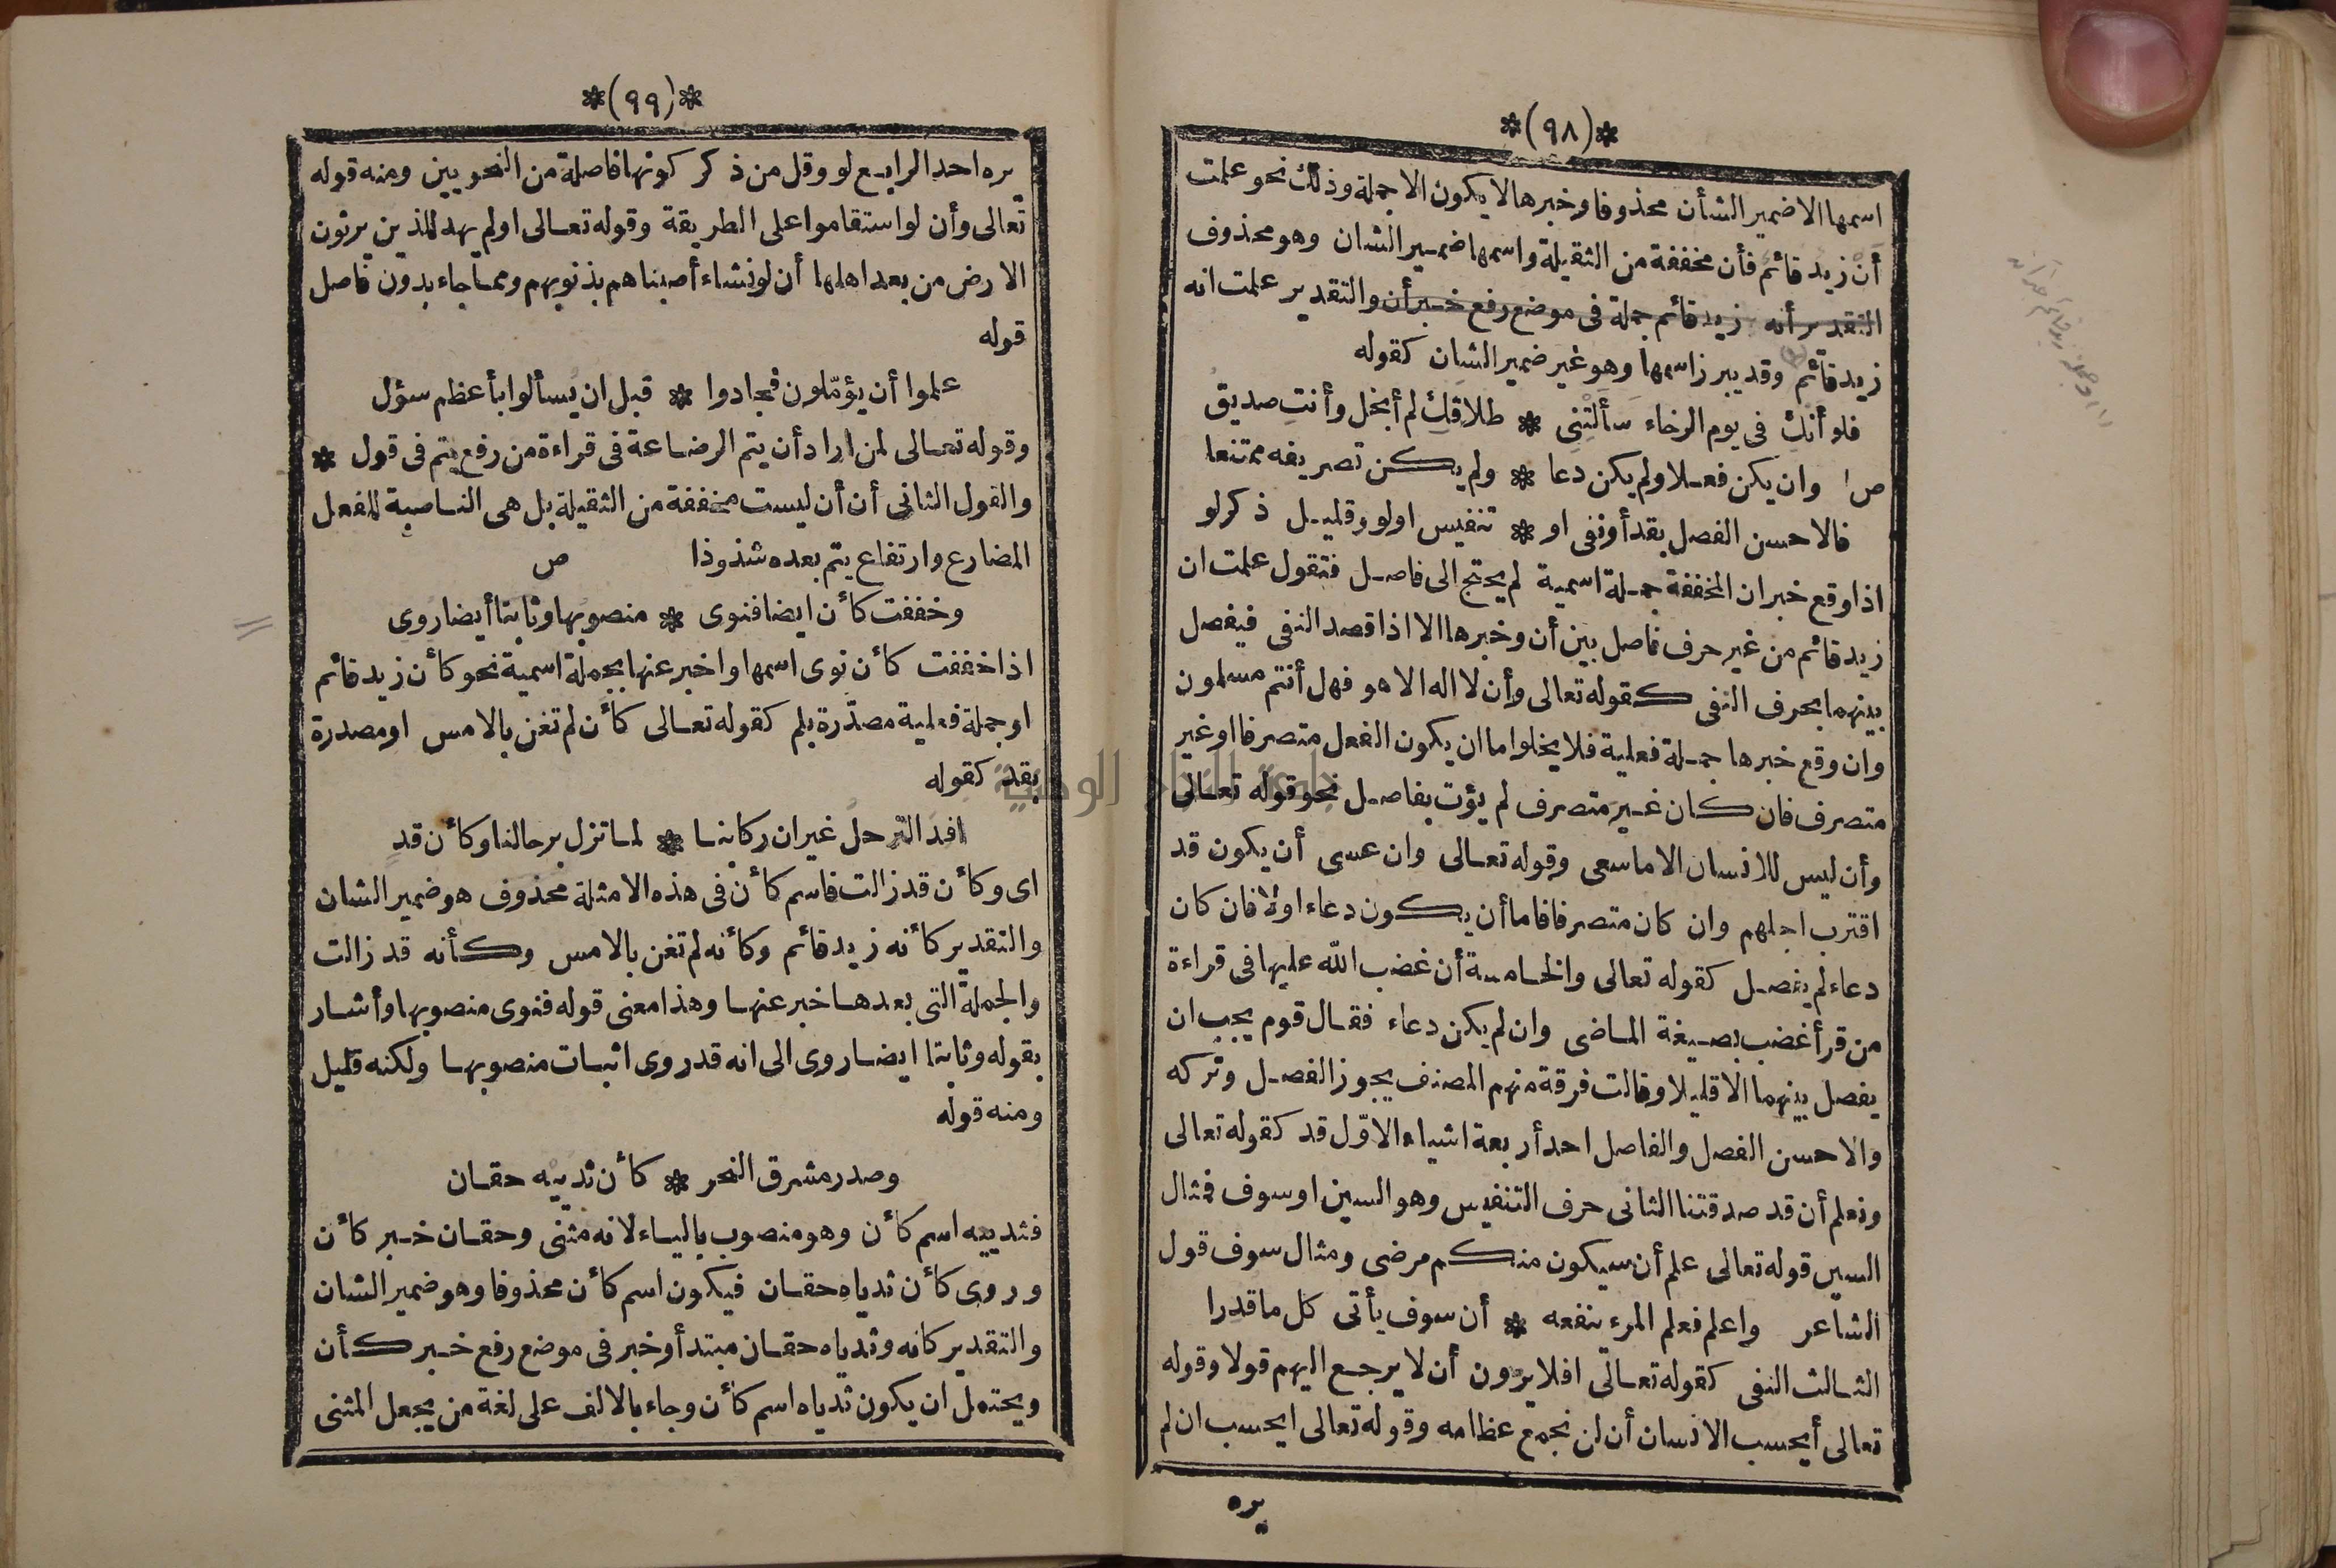 *(٩٨)*
اسمها الا ضمير الشأن محذوفا وخبرها لا يكون الا جملة وذلك نحو علمت
أنْ زيد قائم فأن مخففة من الثقيلة واسمها ضمير الشان وهو محذوف
التقدير أنه زيد قائم جملة فى موضع رفع خبر أن والتقدير علمت انه
زيد قائم وقد يبرز اسمها وهو غير ضمير الشان كقوله
فلو أنْكِ فى يوم الرخاء سَألْتِنِى * طلاقكِ لم أبخل وأنتِ صديق
ص وان يكن فعلا ولم يكن دعا * ولم يكن تصريفه ممتنعا
فالاحسن الفصل بقد أو نفى او * تنفيس او لو وقليل ذكر لو
اذا وقع خبر ان المخففة جملة اسمية لم يحتج الى فاصل فتقول علمت ان
زيد قائم من غير حرف فاصل بين أن وخبرها الا اذا قصد النفى فيفصل
بينهما بحرف النفى كقوله تعالى وأن لا اله الا هو فهل أنتم مسلمون
وان وقع خبرها جملة فعلية فلا يخلوا ما ان يكون الفعل متصرفا او غير
متصرف فان كان غير متصرف لم يؤت بفاصل نحو قوله تعالى
وأن ليس للانسان الا ما سعى وقوله تعالى وان عسى أن يكون قد
اقترب اجلهم وان كان متصرفا فاما أن يكون دعاء اولا فان كان
دعاء لم يفصل كقوله تعالى والخامسة أن غضب الله عليها فى قراءة
من قرأ غضب بصيغة الماضى وان لم يكن دعاء فقال قوم يجب ان
يفصل بينهما الا قليلا وقالت فرقة منهم المصنف يجوز الفصل وتركه
والاحسن الفصل والفاصل احد أربعة اشياء الاوّل قد كقوله تعالى
ونعلم أن قد صدقتنا الثانى حرف التنفيس وهو السين او سوف فمثال
السين قوله تعالى علم أن سيكون منكم مرضى ومثال سوف قول
الشاعر واعلم فعلم المرء ينفعه * أن سوف يأتى كل ما قدرا
الثالث النفى كقوله تعالى افلا يرون أن لا يرجع اليهم قولا وقوله
تعالى أيحسب الانسان أن لن نجمع عظامه وقوله تعالى ايحسب ان لم
يره
*(٩٩)*
يره احد الرابع لو وقل من ذكر كونها فاصلة من النحويين ومنه قوله
تعالى وأن لو استقاموا على الطريقة وقوله تعالى او لم يهد للذين يرثون
الارض من بعد اهلها أن لو نشاء أصبناهم بذنوبهم ومما جاء بدون فاصل
قوله
علموا أن يؤمّلون فجادوا * قبل ان يسألوا بأعظم سؤل
وقوله تعالى لمن اراد أن يتم الرضاعة فى قراءة من رفع يتم فى قول *
والقول الثانى أن أن ليست مخففة من الثقيلة بل هى الناصبة للفعل
المضارع وارتفاع يتم بعده شذوذا ص
وخففت كأن ايضا فنوى * منصوبها وثابتا أيضا روى
اذا خففت كأن نوى اسمها واخبر عنها بجملة اسمية نحو كأن زيد قائم
او جملة فعلية مصدّرة بلم كقوله تعالى كأن لم تغن بالامس او مصدرة
بقد كقوله
افد الترحل غير ان ركابنا * لما تزل برحالنا وكأن قد
اى وكأن قد زالت فاسم كأن فى هذه الامثلة محذوف هو ضمير الشان
والتقدير كأنه زيد قائم وكأنه لم تغن بالامس وكأنه قد زالت
والجملة التى بعدها خبر عنها وهذا معنى قوله فنوى منصوبها وأشار
بقوله وثابتا ايضا روى الى انه قد روى اثبات منصوبها ولكنه قليل
ومنه قوله
وصدر مشرق النحر * كأن ثدييه حقان
فثدييه اسم كأن وهو منصوب بالياء لانه مثنى وحقان خبر كأن
وروى كأن ثدياه حقان فيكون اسم كأن محذوفا وهو ضمير الشان
والتقدير كانه وثدياه حقان مبتدأ وخبر فى موضع رفع خبر كأن
ويحتمل ان يكون ثدياه اسم كأن وجاء بالالف على لغة من يجعل المثنى